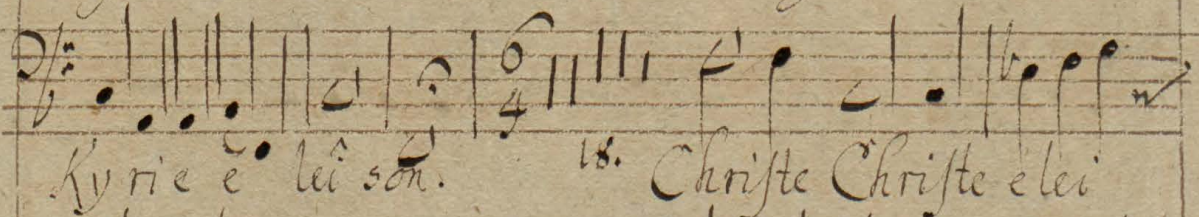 6
4
Kyrie e lei son. 18. Chriſte Chriſte elei